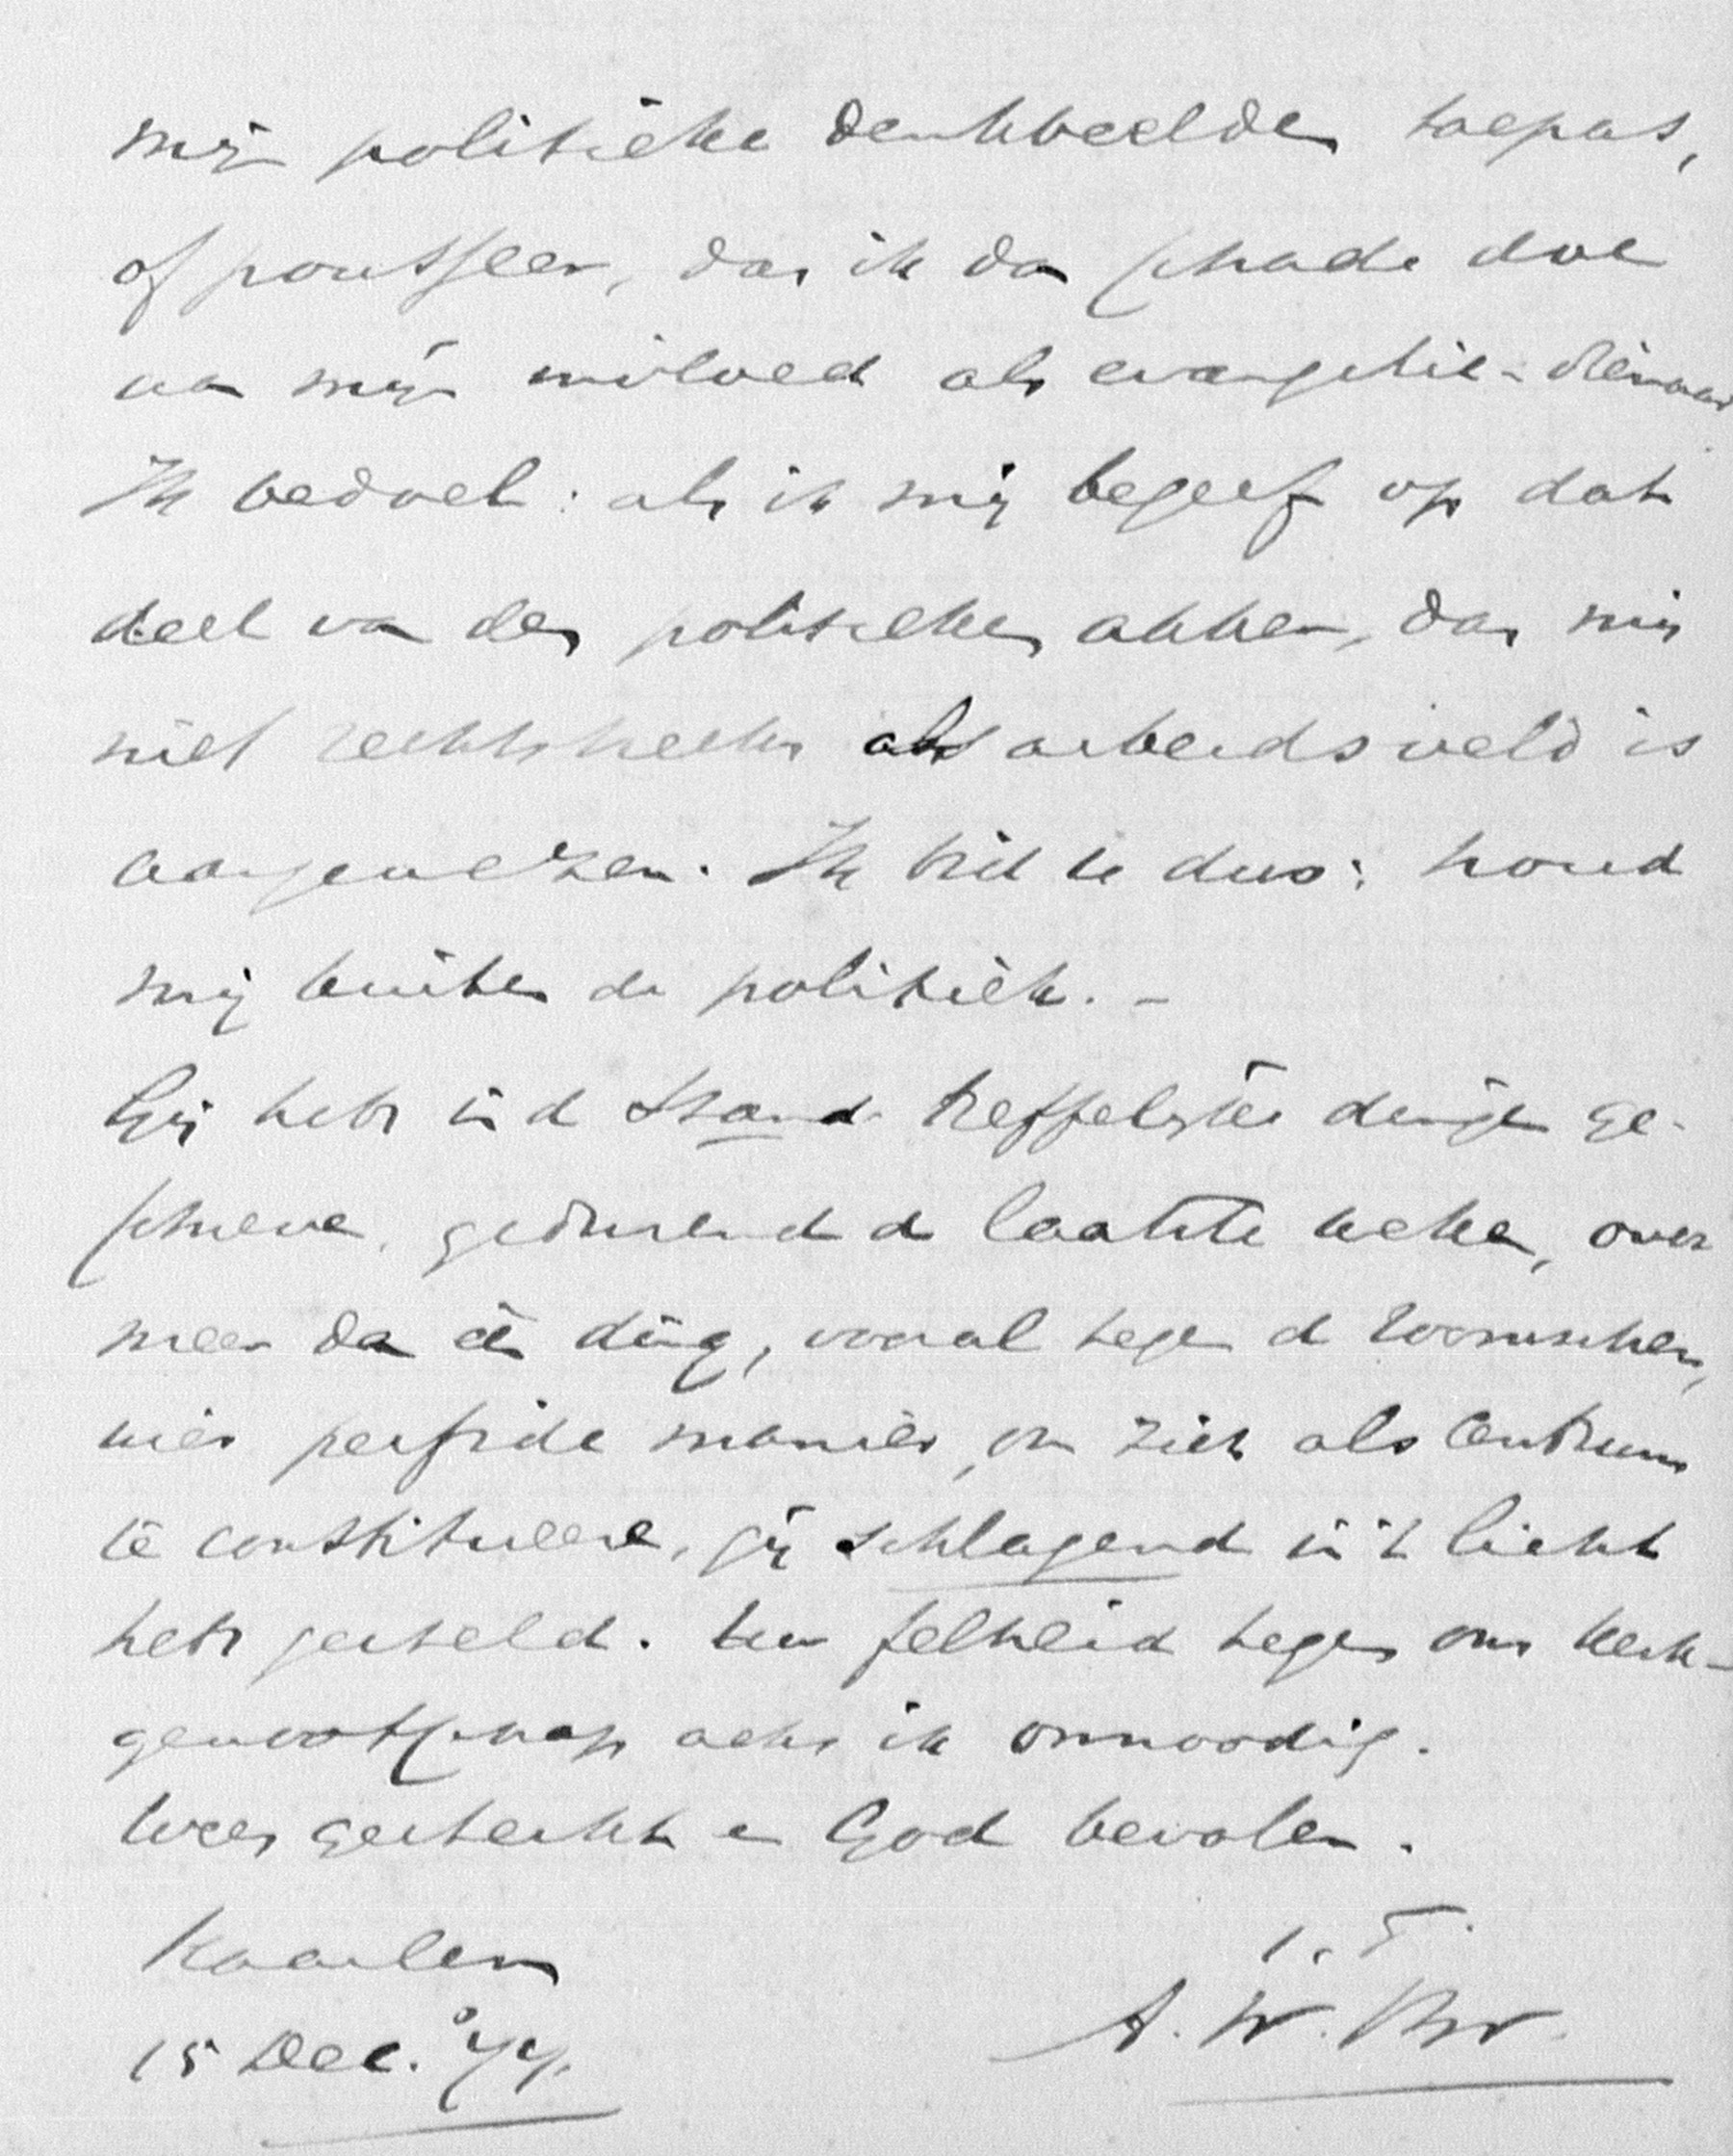 mijn politieke denkbeelden toepas,
of pousseer, dat ik dan schade doe
aan mijn invloed als evangelie-dienaar
Ik bedoel: als ik mij begeef op dat
deel van den politieken akker, dat mij
niet rechtstreeks als arbeidsveld is
aangewezen. Ik bid u dus: houd
mij buiten de politiek. –
Gij hebt in d Stand. treffelijke dingen ge-
schreven, gedurende d laatste weken, over
meer dan één ding, vooral tegen d Roomschen,
wier perfide manier, om zich als Centrum
te constitueeren, gij schlagend in 't licht
hebt gesteld. Uw felheid tegen ons kerk-
genootschap acht ik onnoodig.
Wees gesterkt en God bevolen.
Haarlem
t. t.
15 Dec.
A. W. Br.